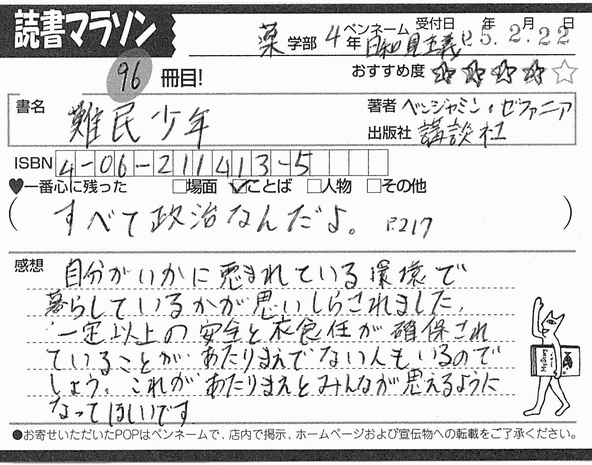 読書マラソン
薬 学部 4 年 ペンネーム 日和見主義 受付日 25年.2月.22日
96 冊目! おすすめ度 ★★★★☆
書名 難民少年 著者 ベンジャミン・ゼファニア
出版社 講談社
ISBN 4-06-211413-5
♥一番心に残った □場面 ☑ことば □人物 □その他
(すべて政治なんだよ。 P.217)
感想 自分がいかに恵まれている環境で
暮らしているかが思いしらされました。
一定以上の安全と衣食住が確保され
ていることが、あたりまえでない人もいるので
しょう。これがあたりまえとみんなが思えるように
なってほしいです
●お寄せいただいたPOPはペンネームで、店内で掲示、ホームページおよび宣伝物への転載をご了承ください。